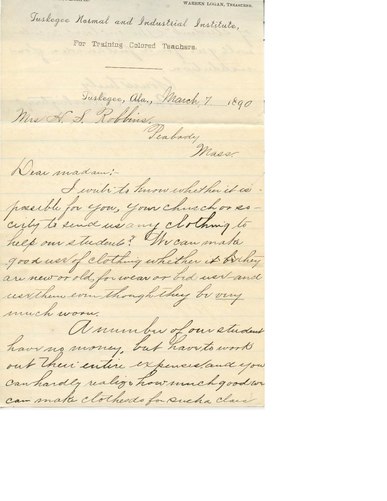 WARREN LOGAN, TREASURER.
Tuskegee Normal and Industrial Institute,
For Training Colored Teachers.
Tuskegee, Ala., March 7. 1890
Mrs H. S. Robbins,
Peabody,
Mass.
Dear madam:
I write to know whether it is
possible for you, your church or so-
ciety to send us any clothing to
help our students? We can make
good use of clothing whether it be they
are new or old, for wear or bed use and
use them even though they be very
much worn.
A number of our student
have no money, but have to work
out their entire expenses and you
can hardly realize how much good we
can make clothes do for such a class